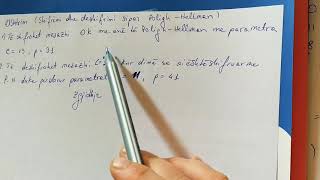 Ushtrim (Shifrim dhe deshifrim sipas Poligh-Hellman)
1. Të shifrohet mesazhi OK me anë të Poligh-Hellman me parametra
e = 13, p = 31
2. Të deshifrohet mesazhi dimë se është shifruar me
P.H duke përdorur parametrat = 11, p = 41
Zgjidhje